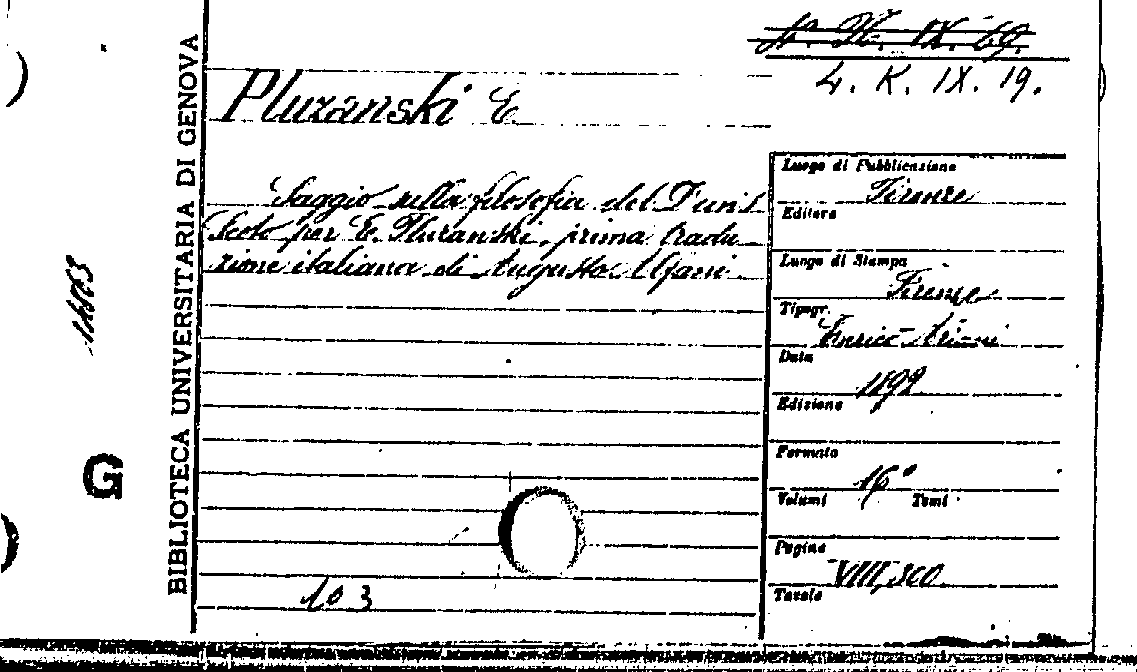 4. K. IX. 19.
Pluzanski E
Saggio sulla filosofia del Duns
Scoto per E. Pluzanski, prima tradu_
zione italiana di Augusto Alfani
103
BIBLIOTECA UNIVERSITARIA DI GENOVA
G
Luogo di Pubblicazione
Firenze
Editore
Luogo di Stampa
Firenze
Tipogr.
Enrico Ariani
Data
1892
Edizione
Formato
16°
Volumi Tomi
Pagine
VIII, 300
Tavole